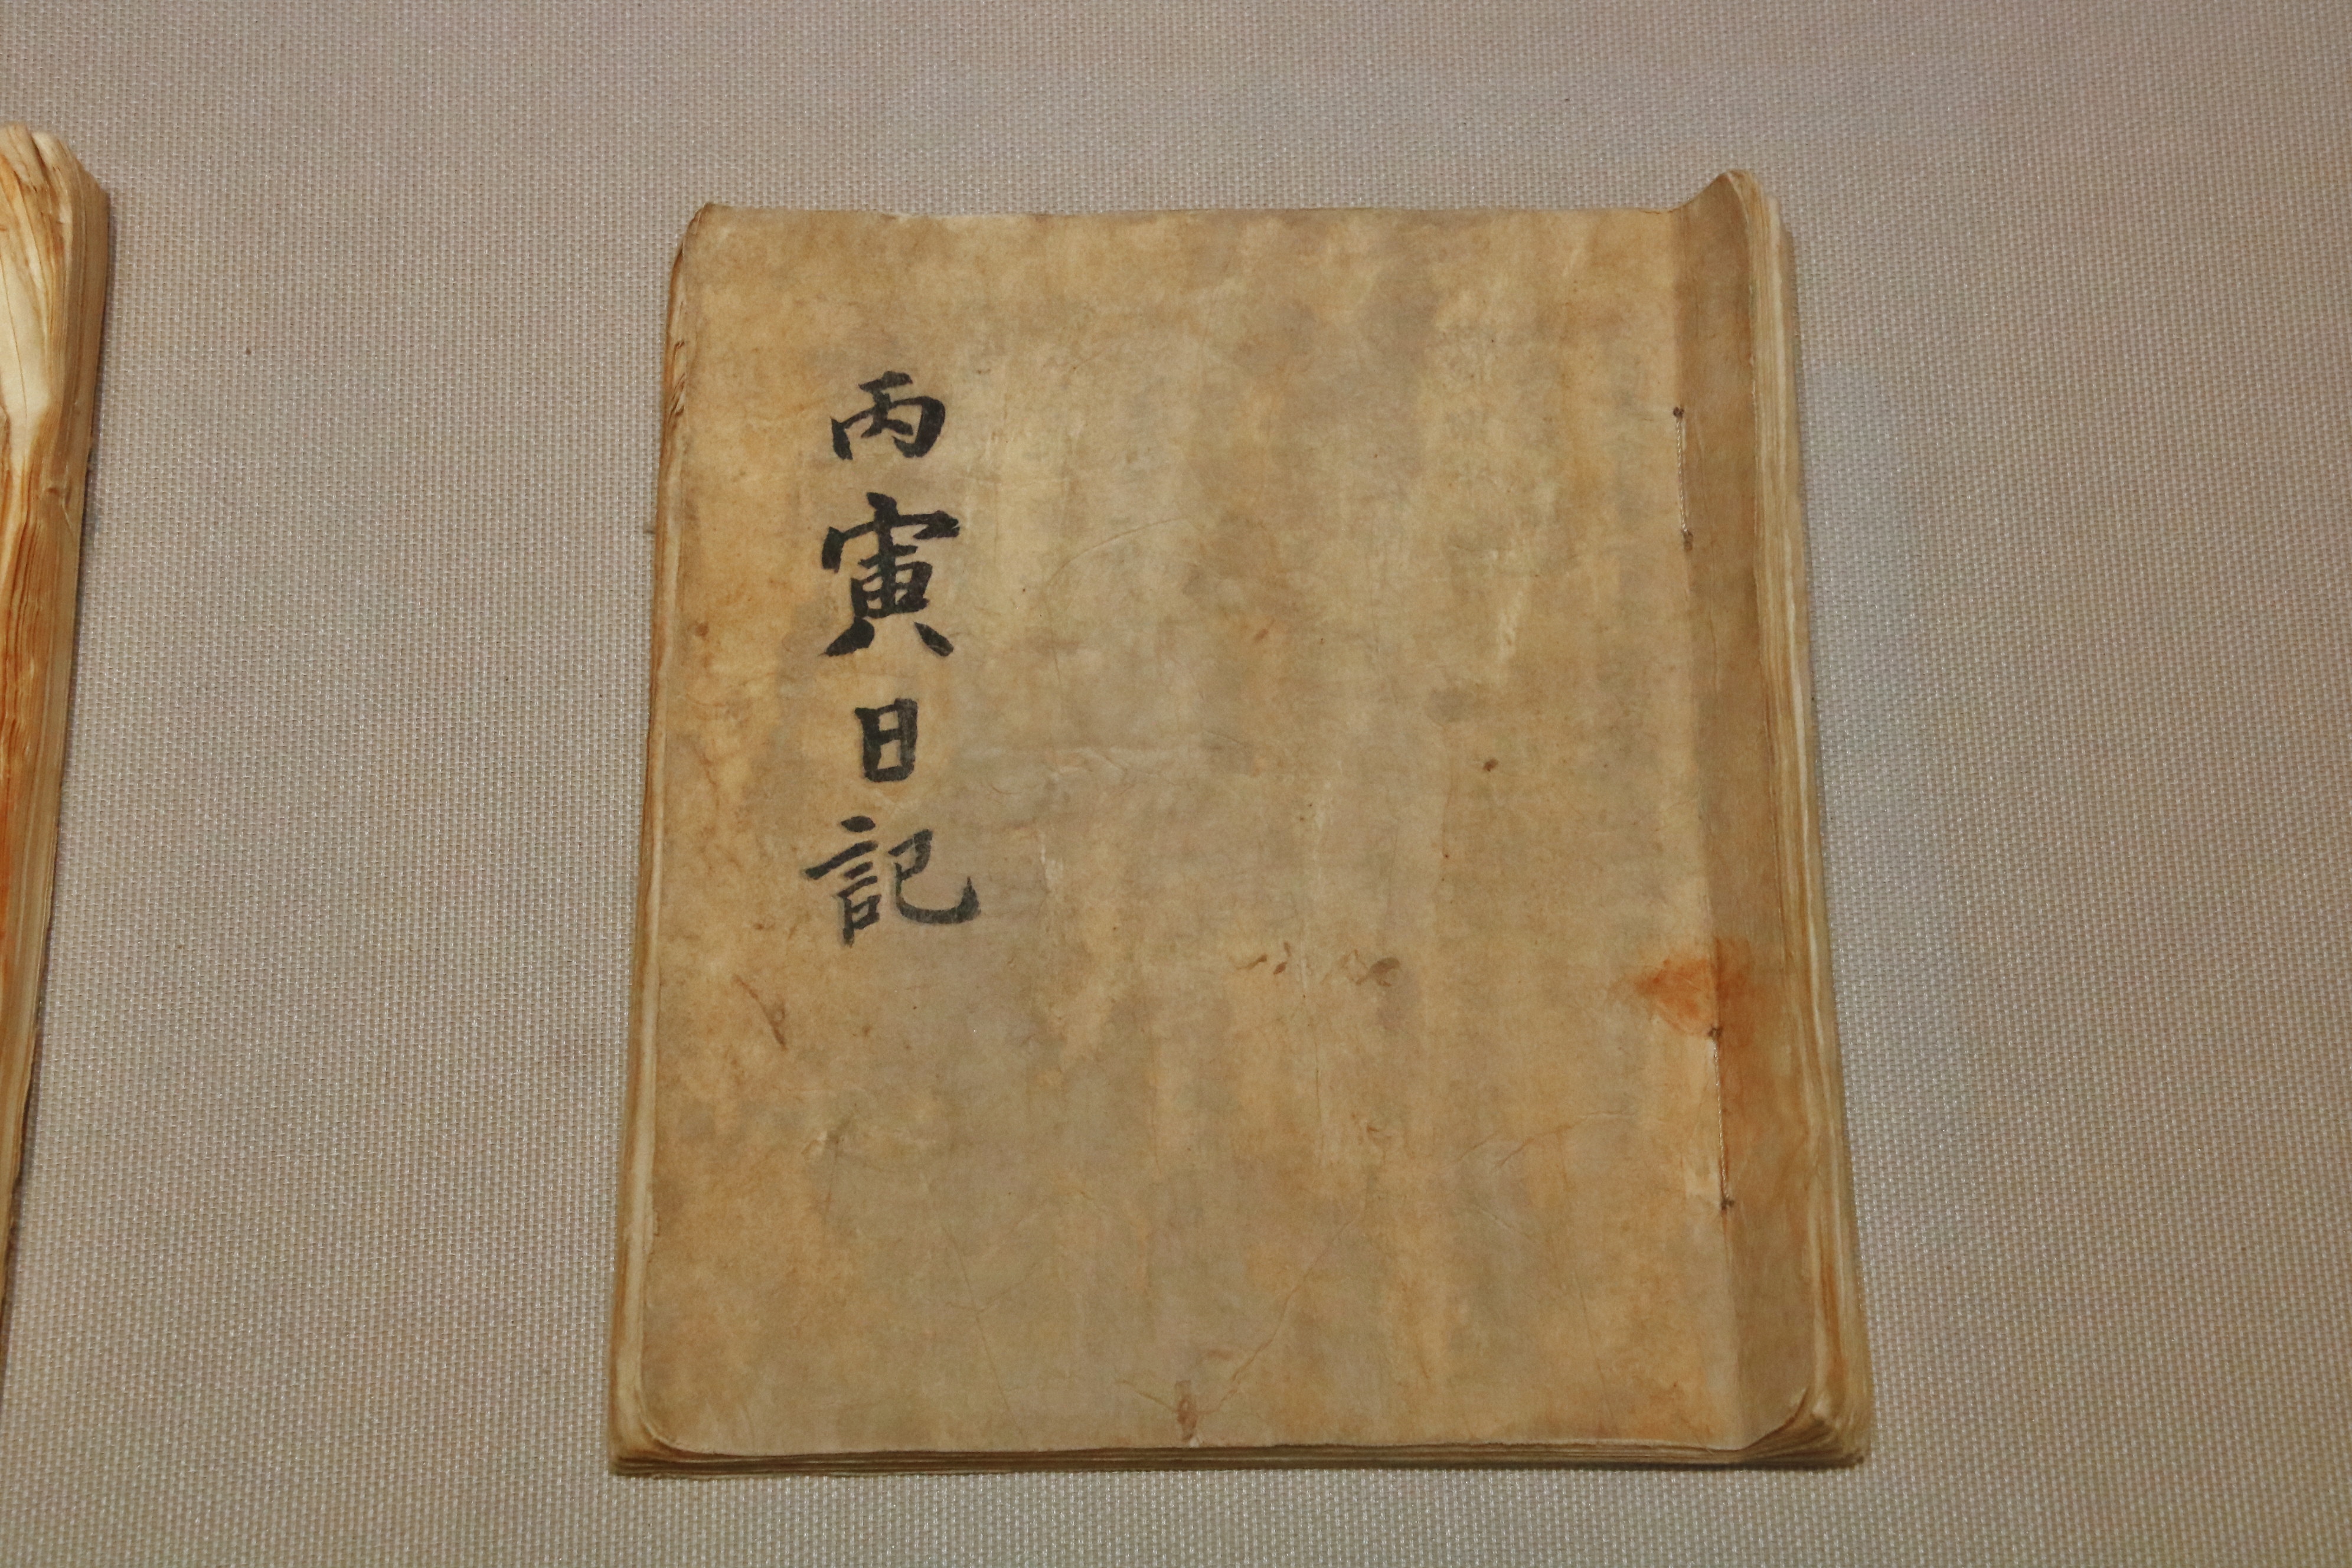 丙寅日記